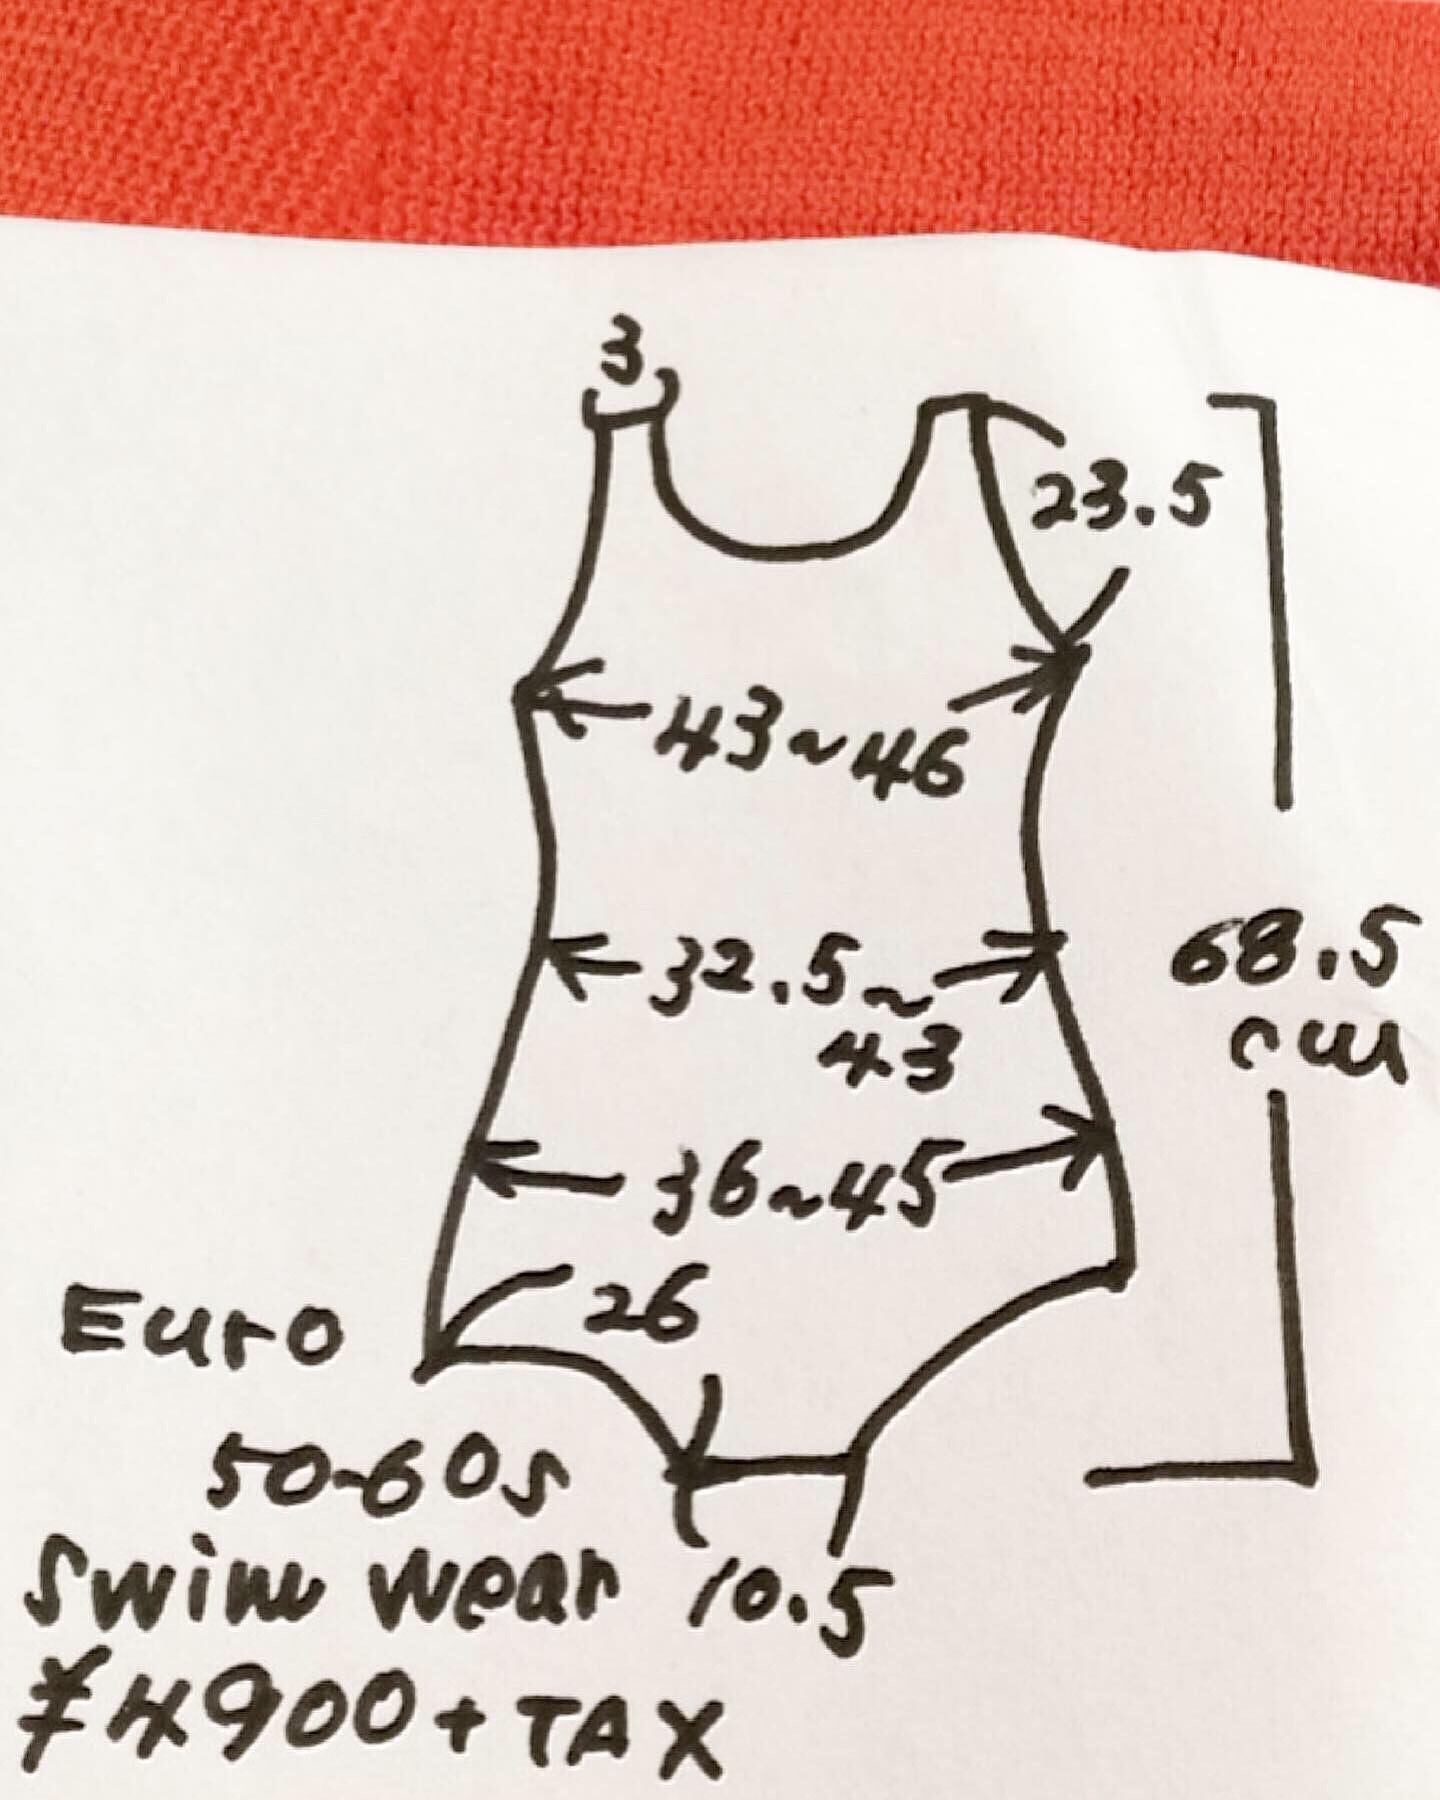 3
23.5
43~46
32.5~
43
68.5
cm
36~45
26
Euro
50-60s
Swim wear
10.5
¥4900+TAX